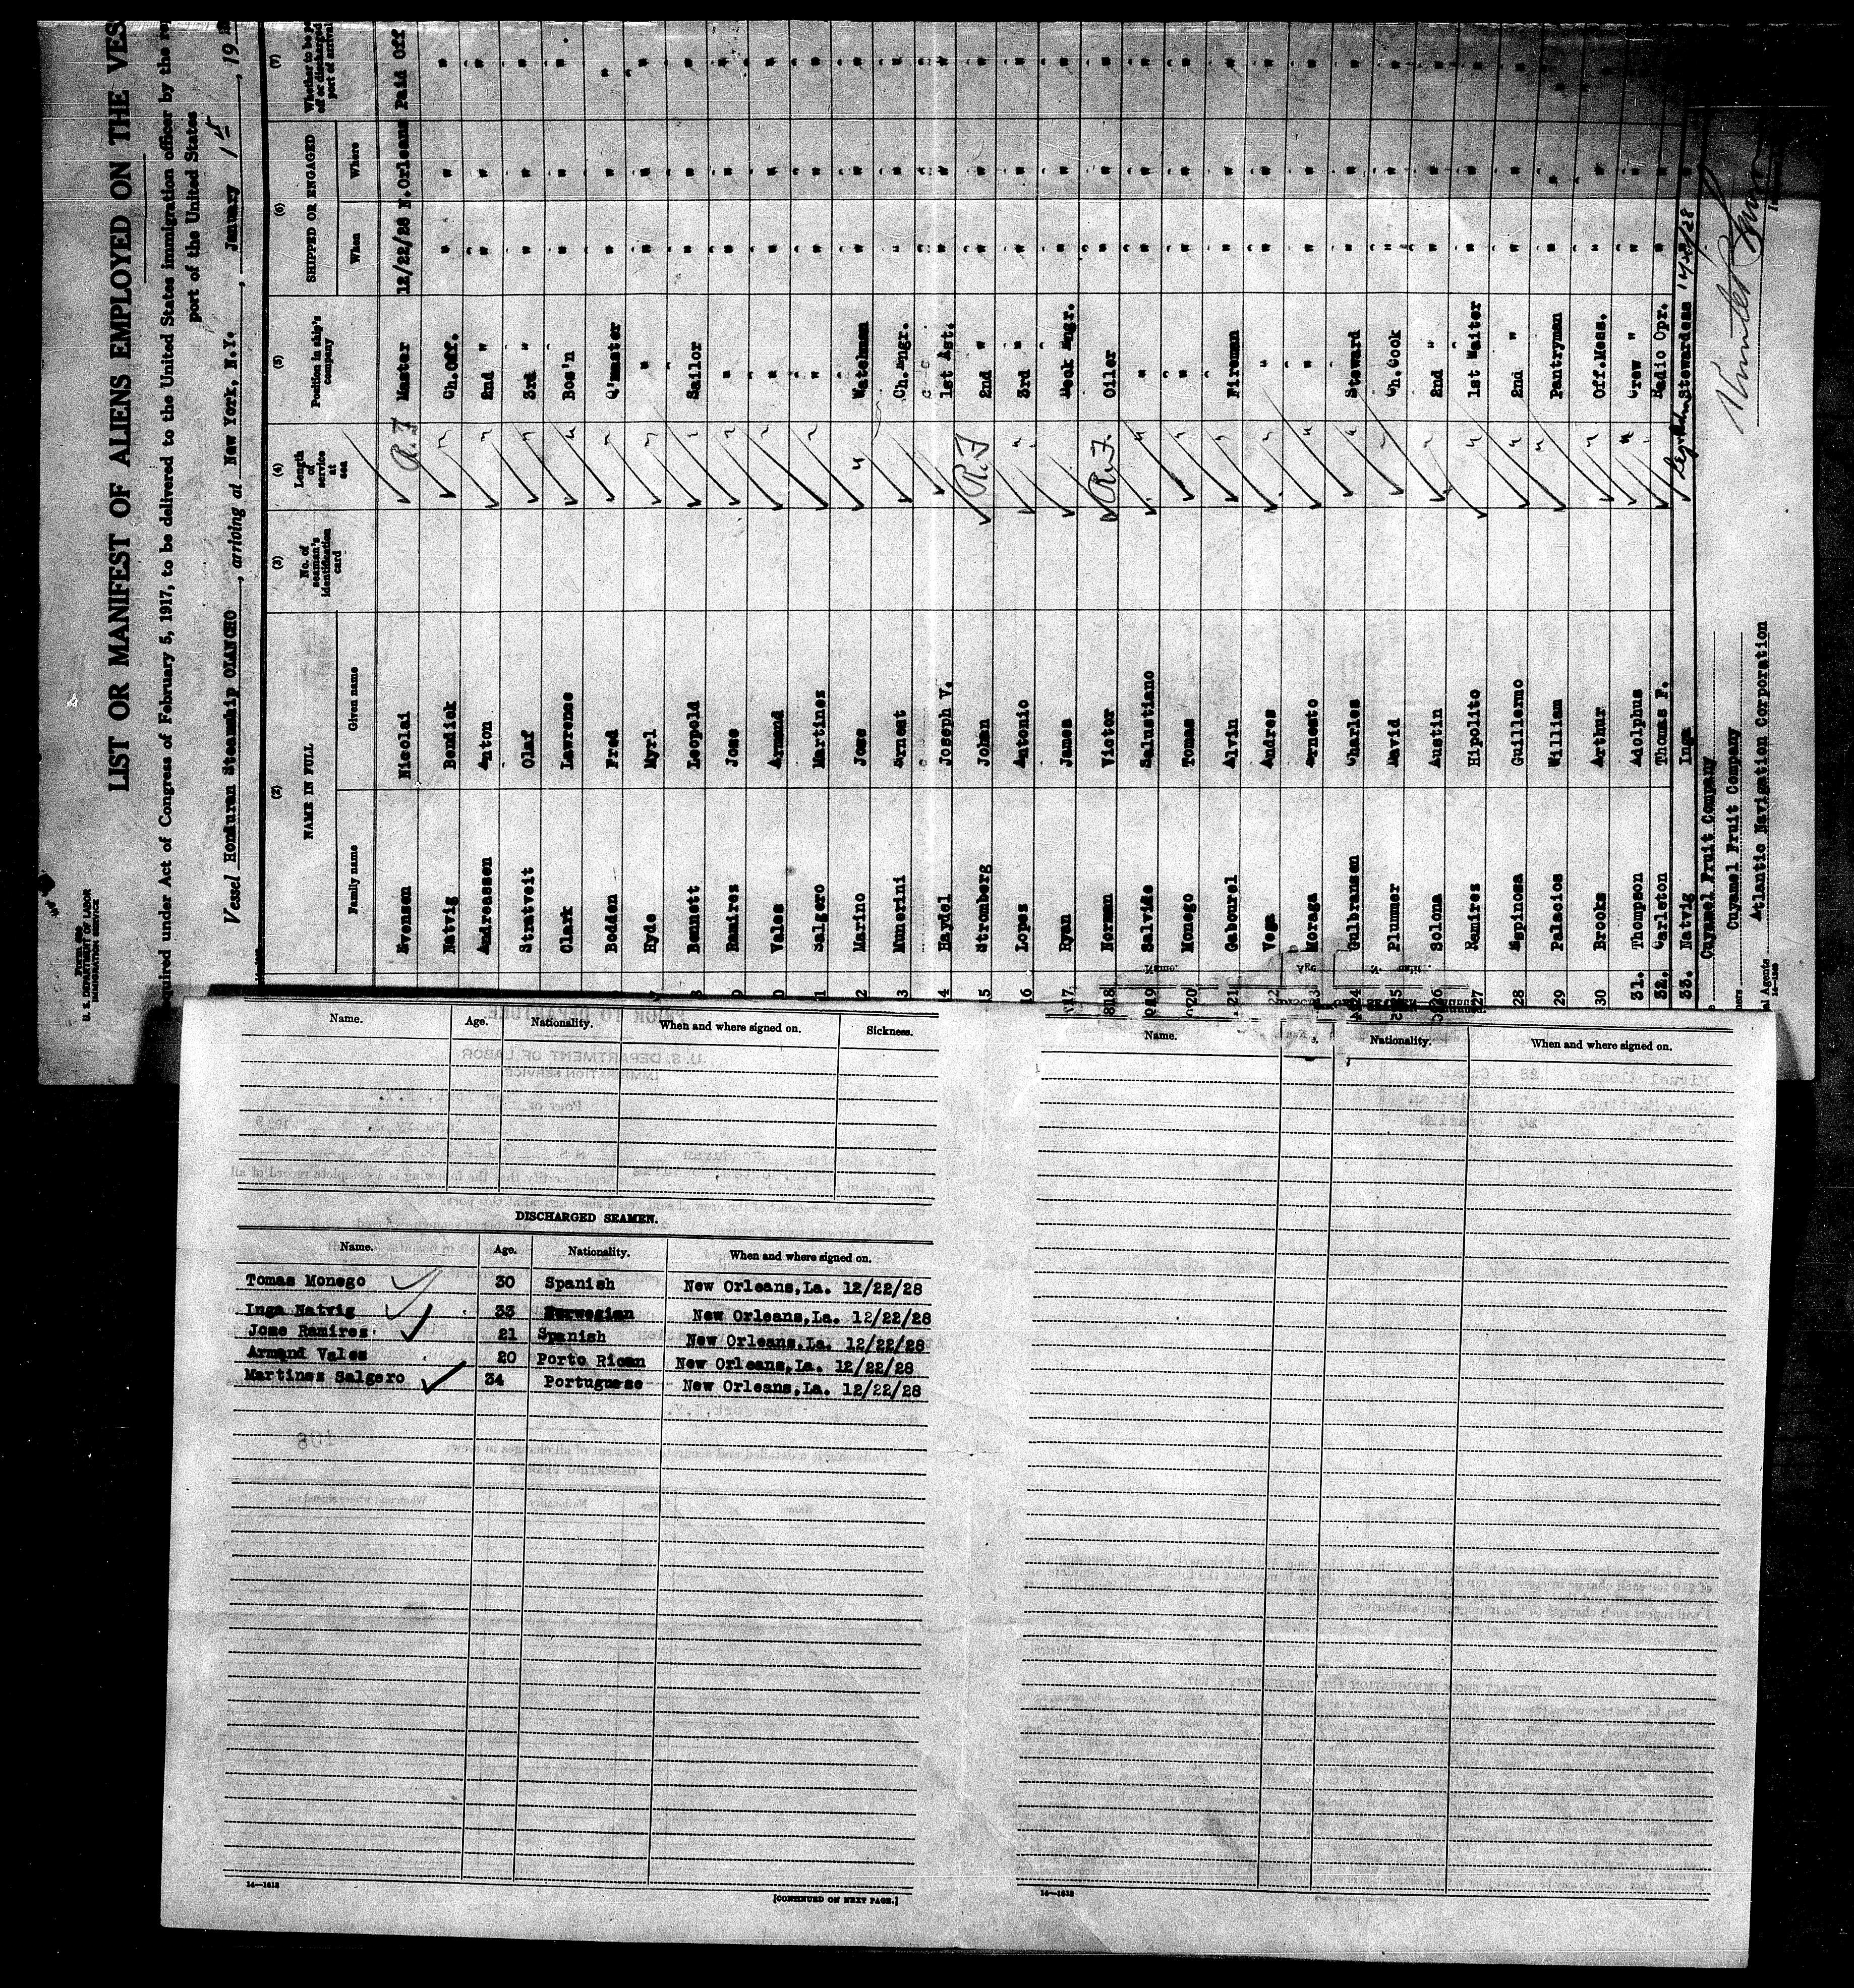 FORM 689
U. S. DEPARTMENT OF LABOR
IMMIGRATION SERVICE
LIST OR MANIFEST OF ALIENS EMPLOYED ON THE VES
quired under Act of Congress of February 5, 1917, to be delivered to the United States immigration officer by the re
port of the United States
Vessel Honduran Steamship OLANCHO, arriving at New York, N.Y., January 1st, 19
(2) (3) (4) (5) (6) (7)
NAME IN FULL No. of seaman's identification card Length of service at sea Position in ship's company SHIPPED OR ENGAGED Whether to be p off or discharged port of arrival
Family name Given name When Where
Evensen Nicolai R.F Master 12/22/28 N.Orleans Paid Off
Natvig Bendick Ch.Off. " " "
Andreassen Anton 2nd " " " "
Stratveit Olaf 3rd " " " "
Clark Lawrence Bos'n " " "
Bodden Fred Q'master " " "
Hyde Myrl " " " "
8 Bennett Leopold Sailor " " "
9 Ramirez Jose " " " "
0 Vales Armand " " " "
1 Salgero Martinez " " " "
2 Marino Jose Watchman " " "
3 Munerini Ernest Ch.Engr. " " "
14 Haydel Joseph V. 1st Ast. " " "
15 Stromberg Johan R.F 2nd " " " "
16 Lopez Antonio 3rd " " " "
17 Ryan James Deck Engr. " " "
18 Norman Victor R.F. Oiler " " "
19 Salvide Salustiano " " " "
20 Monego Tomas " " " "
21 Gabourel Alvin Fireman " " "
22 Vega Andres " " " "
23 Moraga Ernesto " " " "
24 Gulbransen Charles Steward " " "
25 Plummer David Ch.Cook " " "
26 Solona Austin 2nd " " " "
27 Ramirez Hipolito 1st Waiter " " "
28 Espinosa Guillermo 2nd " " " "
29 Palacios William Pantryman " " "
30 Brooks Arthur Off.Mess. " " "
31. Thompson Adolphus Crew " " " "
32. Carleton Thomas F. Radio Opr. " " "
33. Natvig Inga Stewardess "
Cuyamel Fruit Company
Cuyamel Fruit Company
Atlantic Navigation Corporation
al Agents
14—1240
Name. Age. Nationality. When and where signed on. Sickness.
DISCHARGED SEAMEN.
Name. Age. Nationality. When and where signed on.
Tomas Monego 30 Spanish New Orleans,La. 12/22/28
Inga Natvig 33 Norwegian New Orleans,La. 12/22/28
Jose Ramires 21 Spanish New Orleans,La. 12/22/28
Armand Vales 20 Porto Rican New Orleans,La. 12/22/28
Martinez Salgero 34 Portuguese New Orleans,La. 12/22/28
14—1613
[CONTINUED ON NEXT PAGE.]
Name. Nationality. When and where signed on.
14—1613